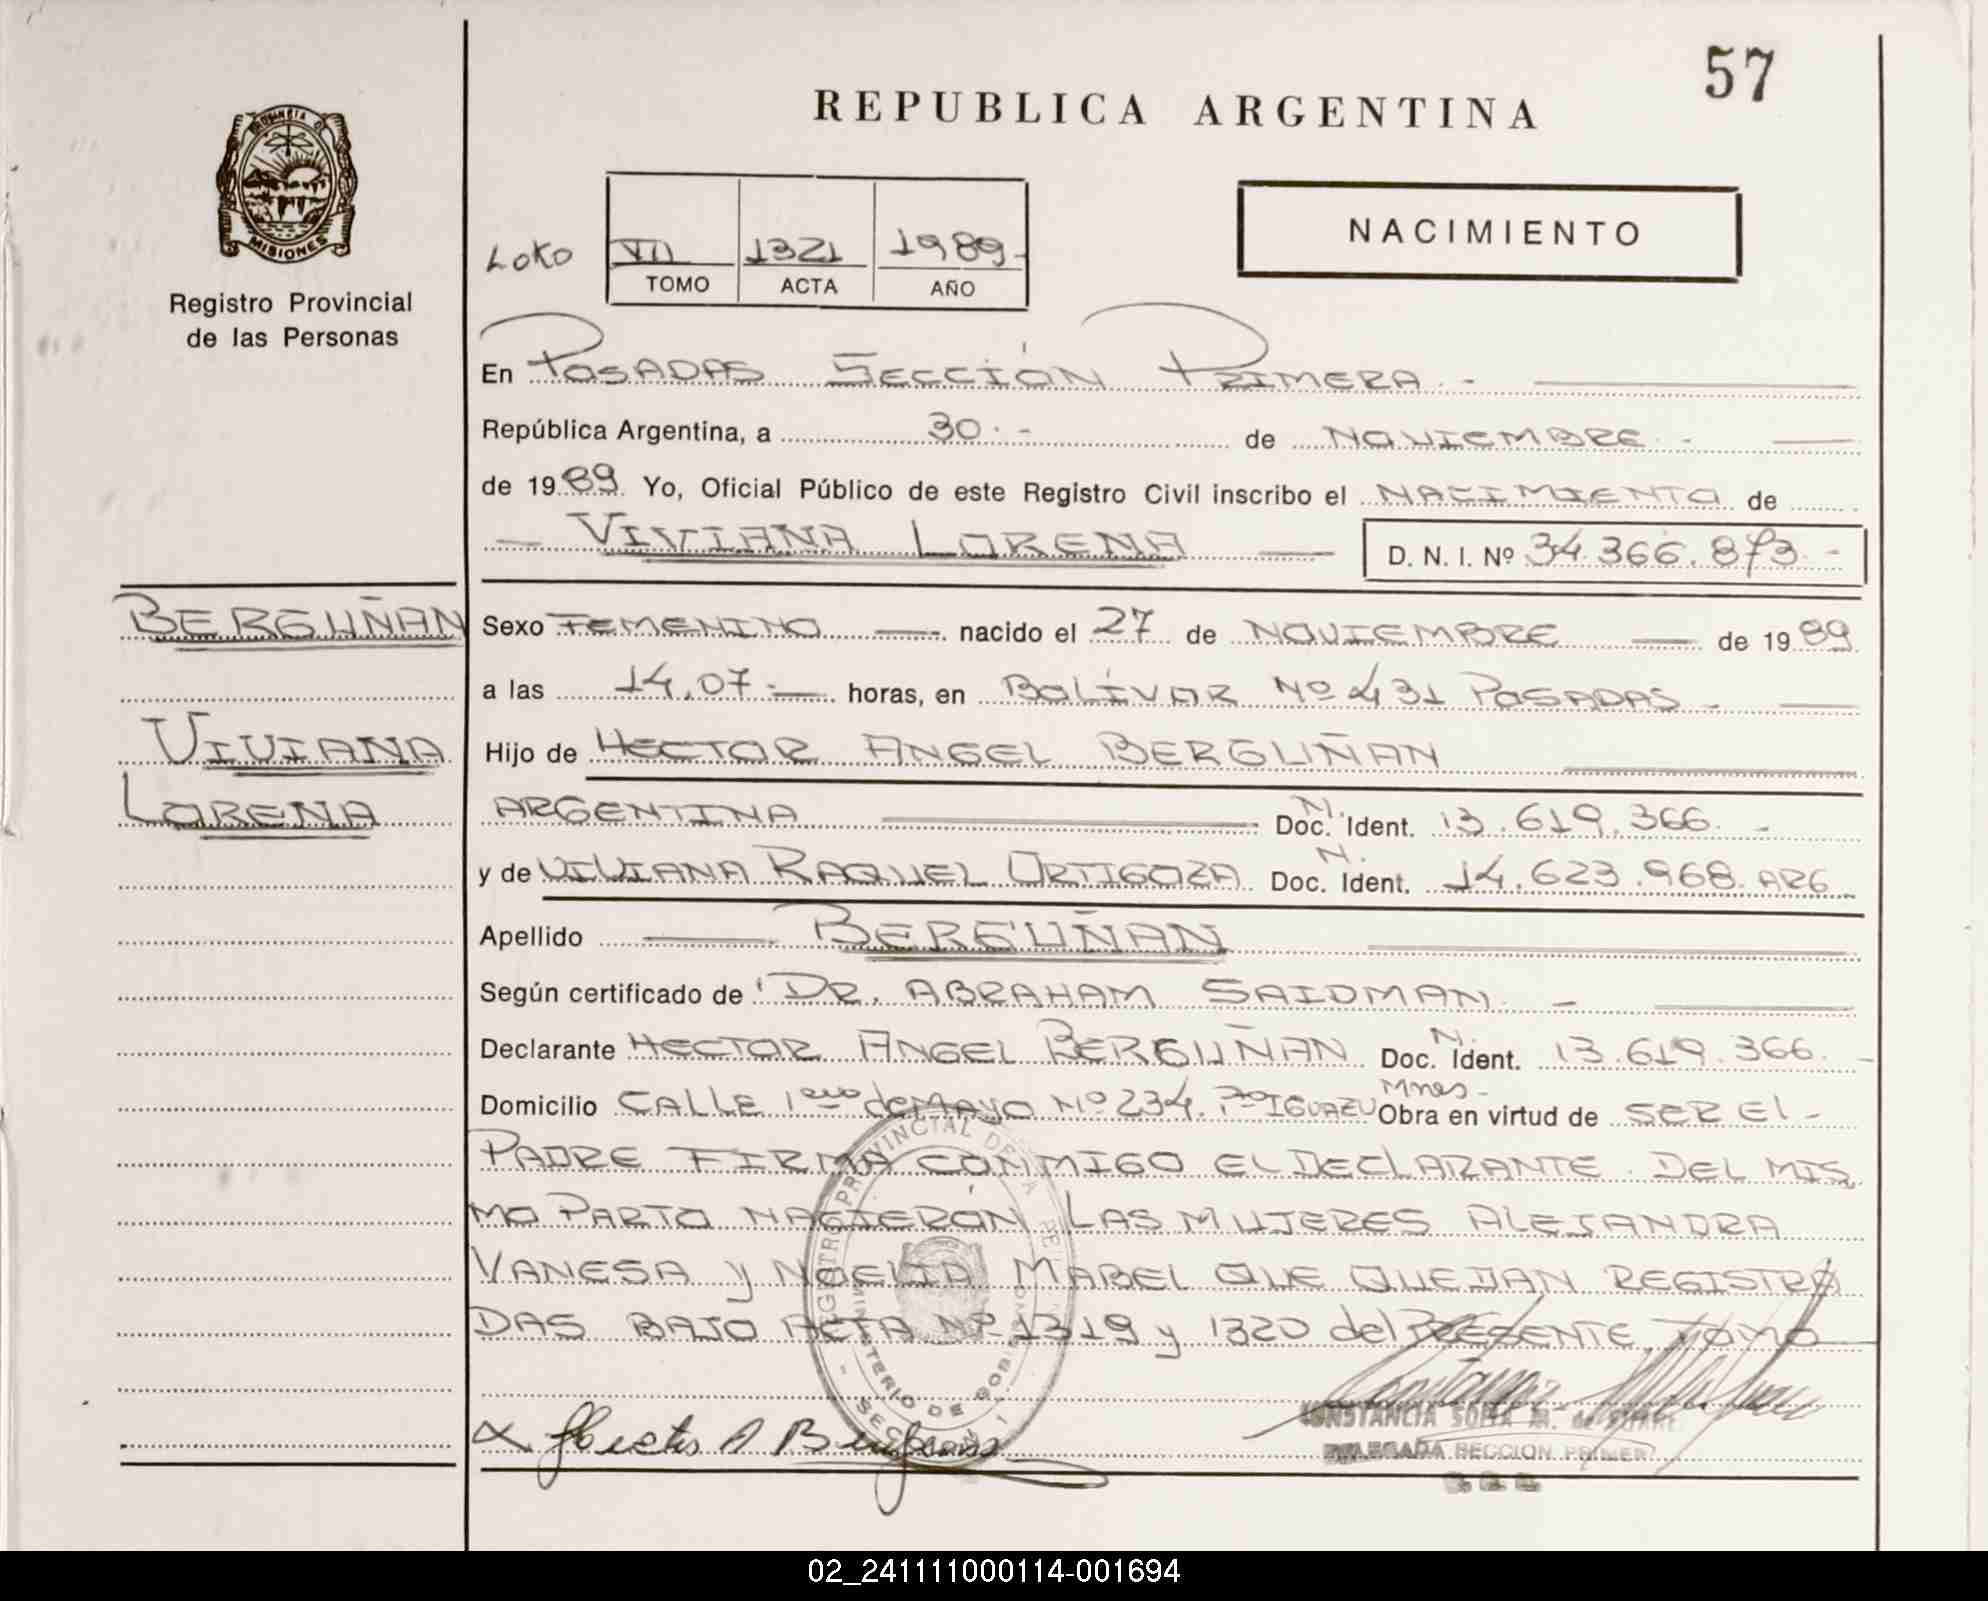 57
REPUBLICA ARGENTINA
PROVINCIA DE
MISIONES
Registro Provincial
de las Personas
LOKO
VII 1321 1989-
TOMO ACTA AÑO
NACIMIENTO
En POSADAS SECCIÓN PRIMERA.-
República Argentina, a 30.- de NOVIEMBRE.-
de 1989 Yo, Oficial Público de este Registro Civil inscribo el NACIMIENTO de
VIVIANA LORENA
D. N. I. Nº 34.366.873.-
BERGUÑAN
VIVIANA
LORENA
Sexo FEMENINO nacido el 27 de NOVIEMBRE de 1989
a las 14,07.- horas, en BOLÍVAR Nº 431 POSADAS.-
Hijo de HECTOR ANGEL BERGUÑAN
ARGENTINA Doc. N. Ident. 13.619.366.-
y de VIVIANA RAQUEL ORTIGOZA Doc. N. Ident. 14.623.968. ARG.
Apellido BERGUÑAN
Según certificado de DR. ABRAHAM SAIDMAN.-
Declarante HECTOR ANGEL BERGUÑAN Doc. N. Ident. 13.619.366.-
Domicilio CALLE 1ero de MAYO Nº 234. Pto IGUAZU Mnes- Obra en virtud de SER El-
PADRE FIRMA CONMIGO EL DEClARANTE. DEL MIS
MO PARTO NACIERÓN LAS MUJERES ALEJANDRA
VANESA y NOELIA MABEL QUE QUEDAN REGISTRA
DAS BAJO ACTA Nº 1319 y 1320 del PRESENTE TOMO
REGISTRO PROVINCIAL DE
MINISTERIO DE GOBIERNO
Hector A Berguñan
CONSTANCIA SOFIA M. de
DELEGADA SECCION PRIMERA
02_241111000114-001694